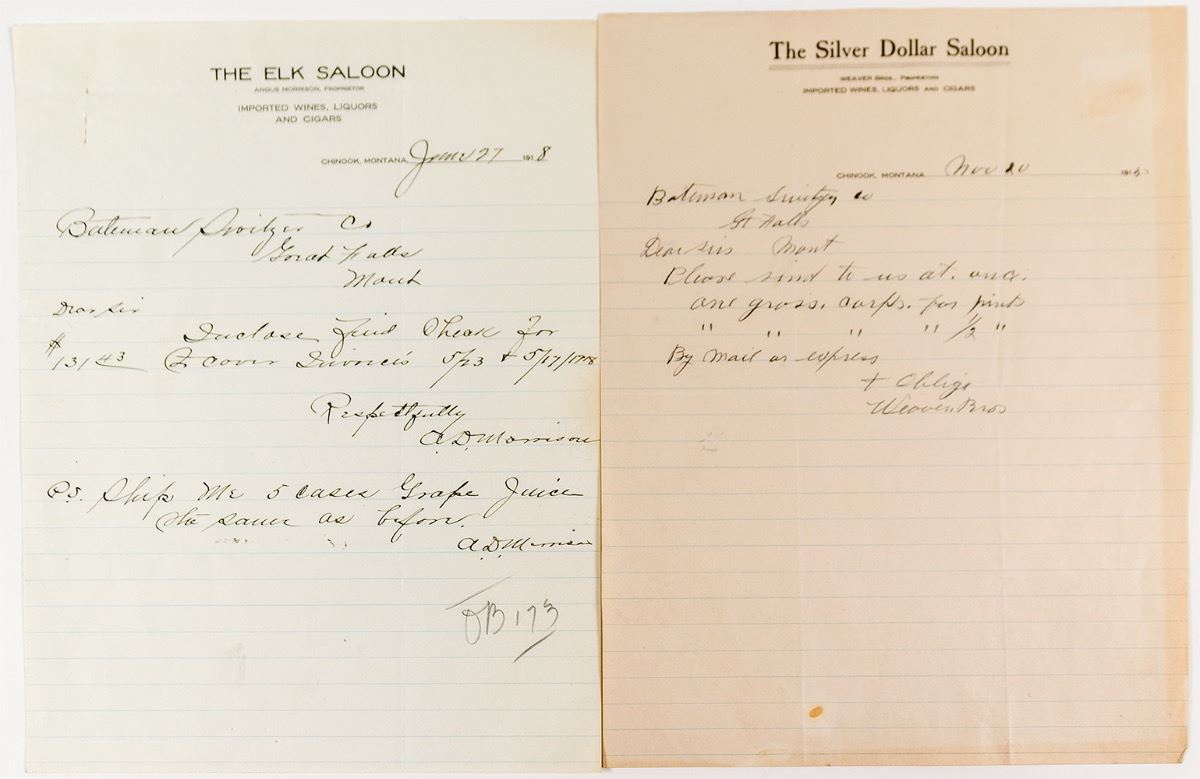 THE ELK SALOON
ANGUS MORRISON, PROPRIETOR
IMPORTED WINES, LIQUORS
AND CIGARS
CHINOOK, MONTANA, June 27 1918
Bateman Switzer Co
Great Falls
Mont
Dear Sir
Inclose find Check for
$131 43 to cover Invoices 5/23 + 5/17/1918
Respectfully
A.D. Morrison
P.S. Ship Me 5 cases Grape Juice
the same as before.
A.D. Morrison
173
The Silver Dollar Saloon
WEAVER BROS., PROPRIETORS
IMPORTED WINES, LIQUORS AND CIGARS
CHINOOK, MONTANA Nov 20 191
Bateman Switzer Co
Gt Falls
Dear Sirs Mont
Please send to us at. once.
one gross. corks. for pints
" " " " 1/2 "
By Mail or express
+ Oblige
Weaver Bros